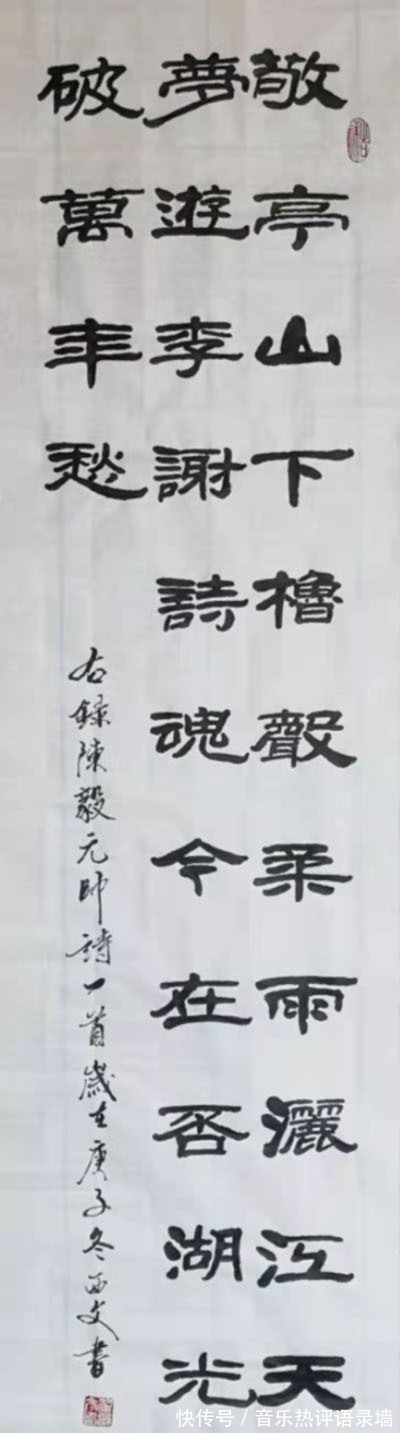 敬亭山下櫓聲柔雨灑江天
夢遊李謝詩魂今在否湖光
破萬年愁
右録陳毅元帥詩一首歲在庚子冬西文書
快传号／音乐热评语录墙